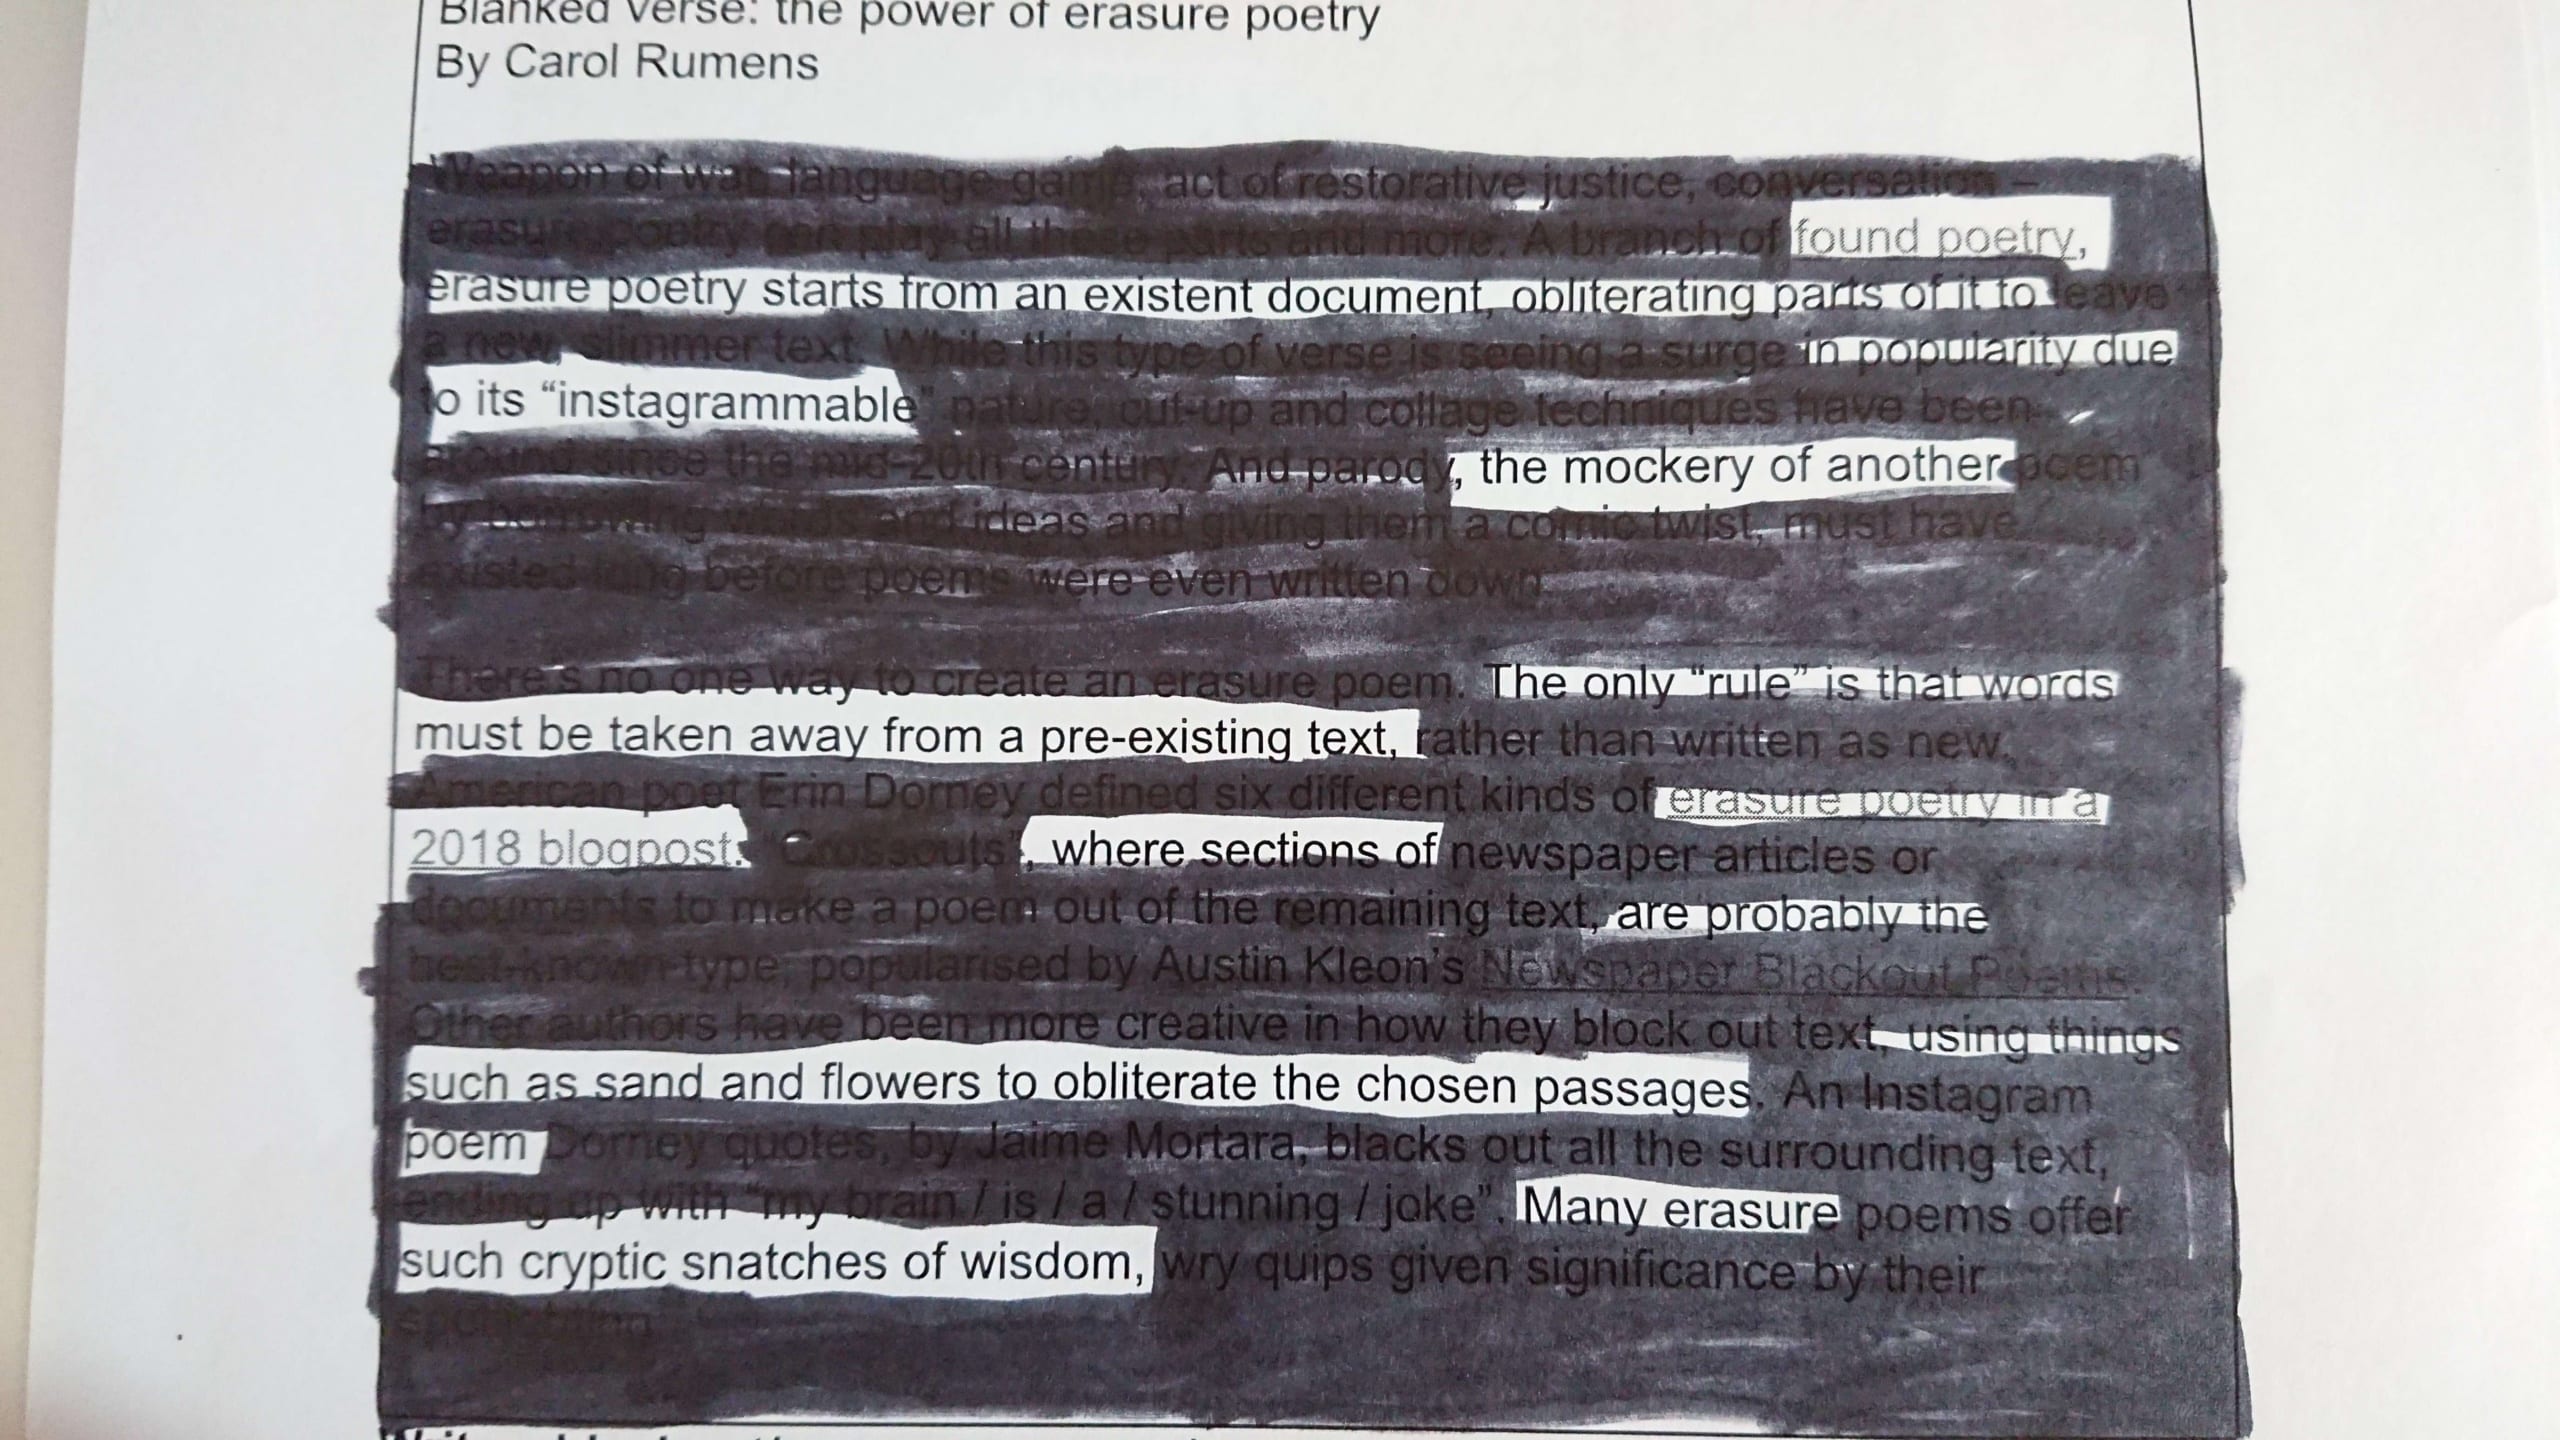 Blanked verse: the power of erasure poetry
By Carol Rumens
Weapon of war, language game, act of restorative justice, conversation –
erasure poetry can play all these parts and more. A branch of found poetry,
erasure poetry starts from an existent document, obliterating parts of it to leave
a new, slimmer text. While this type of verse is seeing a surge in popularity due
to its “instagrammable” nature, cut-up and collage techniques have been
around since the mid-20th century. And parody, the mockery of another poem
by borrowing words and ideas and giving them a comic twist, must have
existed long before poems were even written down.
There’s no one way to create an erasure poem. The only “rule” is that words
must be taken away from a pre-existing text, rather than written as new.
American poet Erin Dorney defined six different kinds of erasure poetry in a
2018 blogpost. “Crossouts”, where sections of newspaper articles or
documents to make a poem out of the remaining text, are probably the
best-known type, popularised by Austin Kleon’s Newspaper Blackout Poems.
Other authors have been more creative in how they block out text, using things
such as sand and flowers to obliterate the chosen passages. An Instagram
poem Dorney quotes, by Jaime Mortara, blacks out all the surrounding text,
ending up with “my brain / is / a / stunning / joke”. Many erasure poems offer
such cryptic snatches of wisdom, wry quips given significance by their